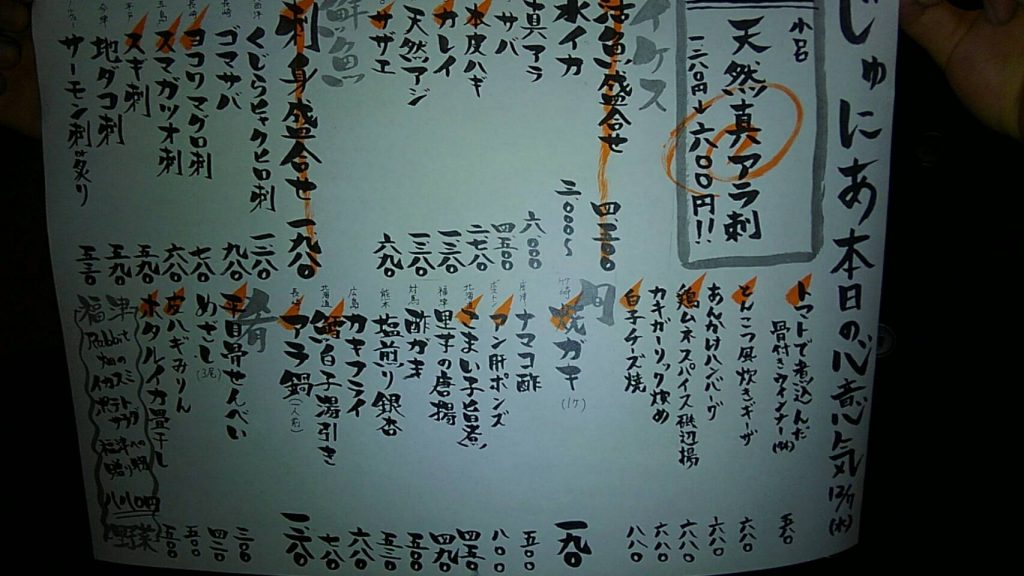 じゅにあ本日の心意気 12/11(水)
小呂
天然真アラ刺
一二八〇円→六〇〇円!!
イケス
活魚盛合せ 四五〇〇
水イカ 三、〇〇〇〜
真アラ 六、〇〇〇
サバ 四、五〇〇
本皮ハギ 二、七八〇
カレイ 一、三八〇
天然アジ 一、三八〇
サザエ 六八〇
鮮魚
刺身盛合せ 一九八〇
くじらヒャクヒロ刺 一二八〇
長崎 ゴマサバ 九八〇
長崎 ヨコワマグロ刺 七八〇
五島 スマガツオ刺 六八〇
スギ刺 五九〇
地ダコ刺 五九〇
サーモン刺 炙り 五三〇
トマトで煮込んだ
骨付きウインナー 五八〇
とんこつ風炊きギーザ 六八〇
あんかけハンバーグ 六八〇
鶏ムネスパイス磯辺揚 六八〇
カキガーリック炒め 六八〇
白子チーズ焼 八八〇
焼ガキ(1ケ)
ナマコ酢 五五〇
アン肝ポンズ 八〇〇
北海道 こまい子旨煮 四五〇
福津 里芋の唐揚 四九〇
対馬 酢ガキ 五五〇
熊本 塩煎り銀杏 五三〇
広島 カキフライ 六八〇
北海道 鱈白子湯引き 七八〇
長崎 アラ鍋(一人前) 一二八〇
肴
平目骨せんべい 三〇〇
めざし(3尾) 四二〇
皮ハギみりん 五〇〇
ホタルイカ畳干し 五〇〇
福津
Rabbit
畑の
イカスミ
ポテトサラダ
福津への
贈り物
野菜